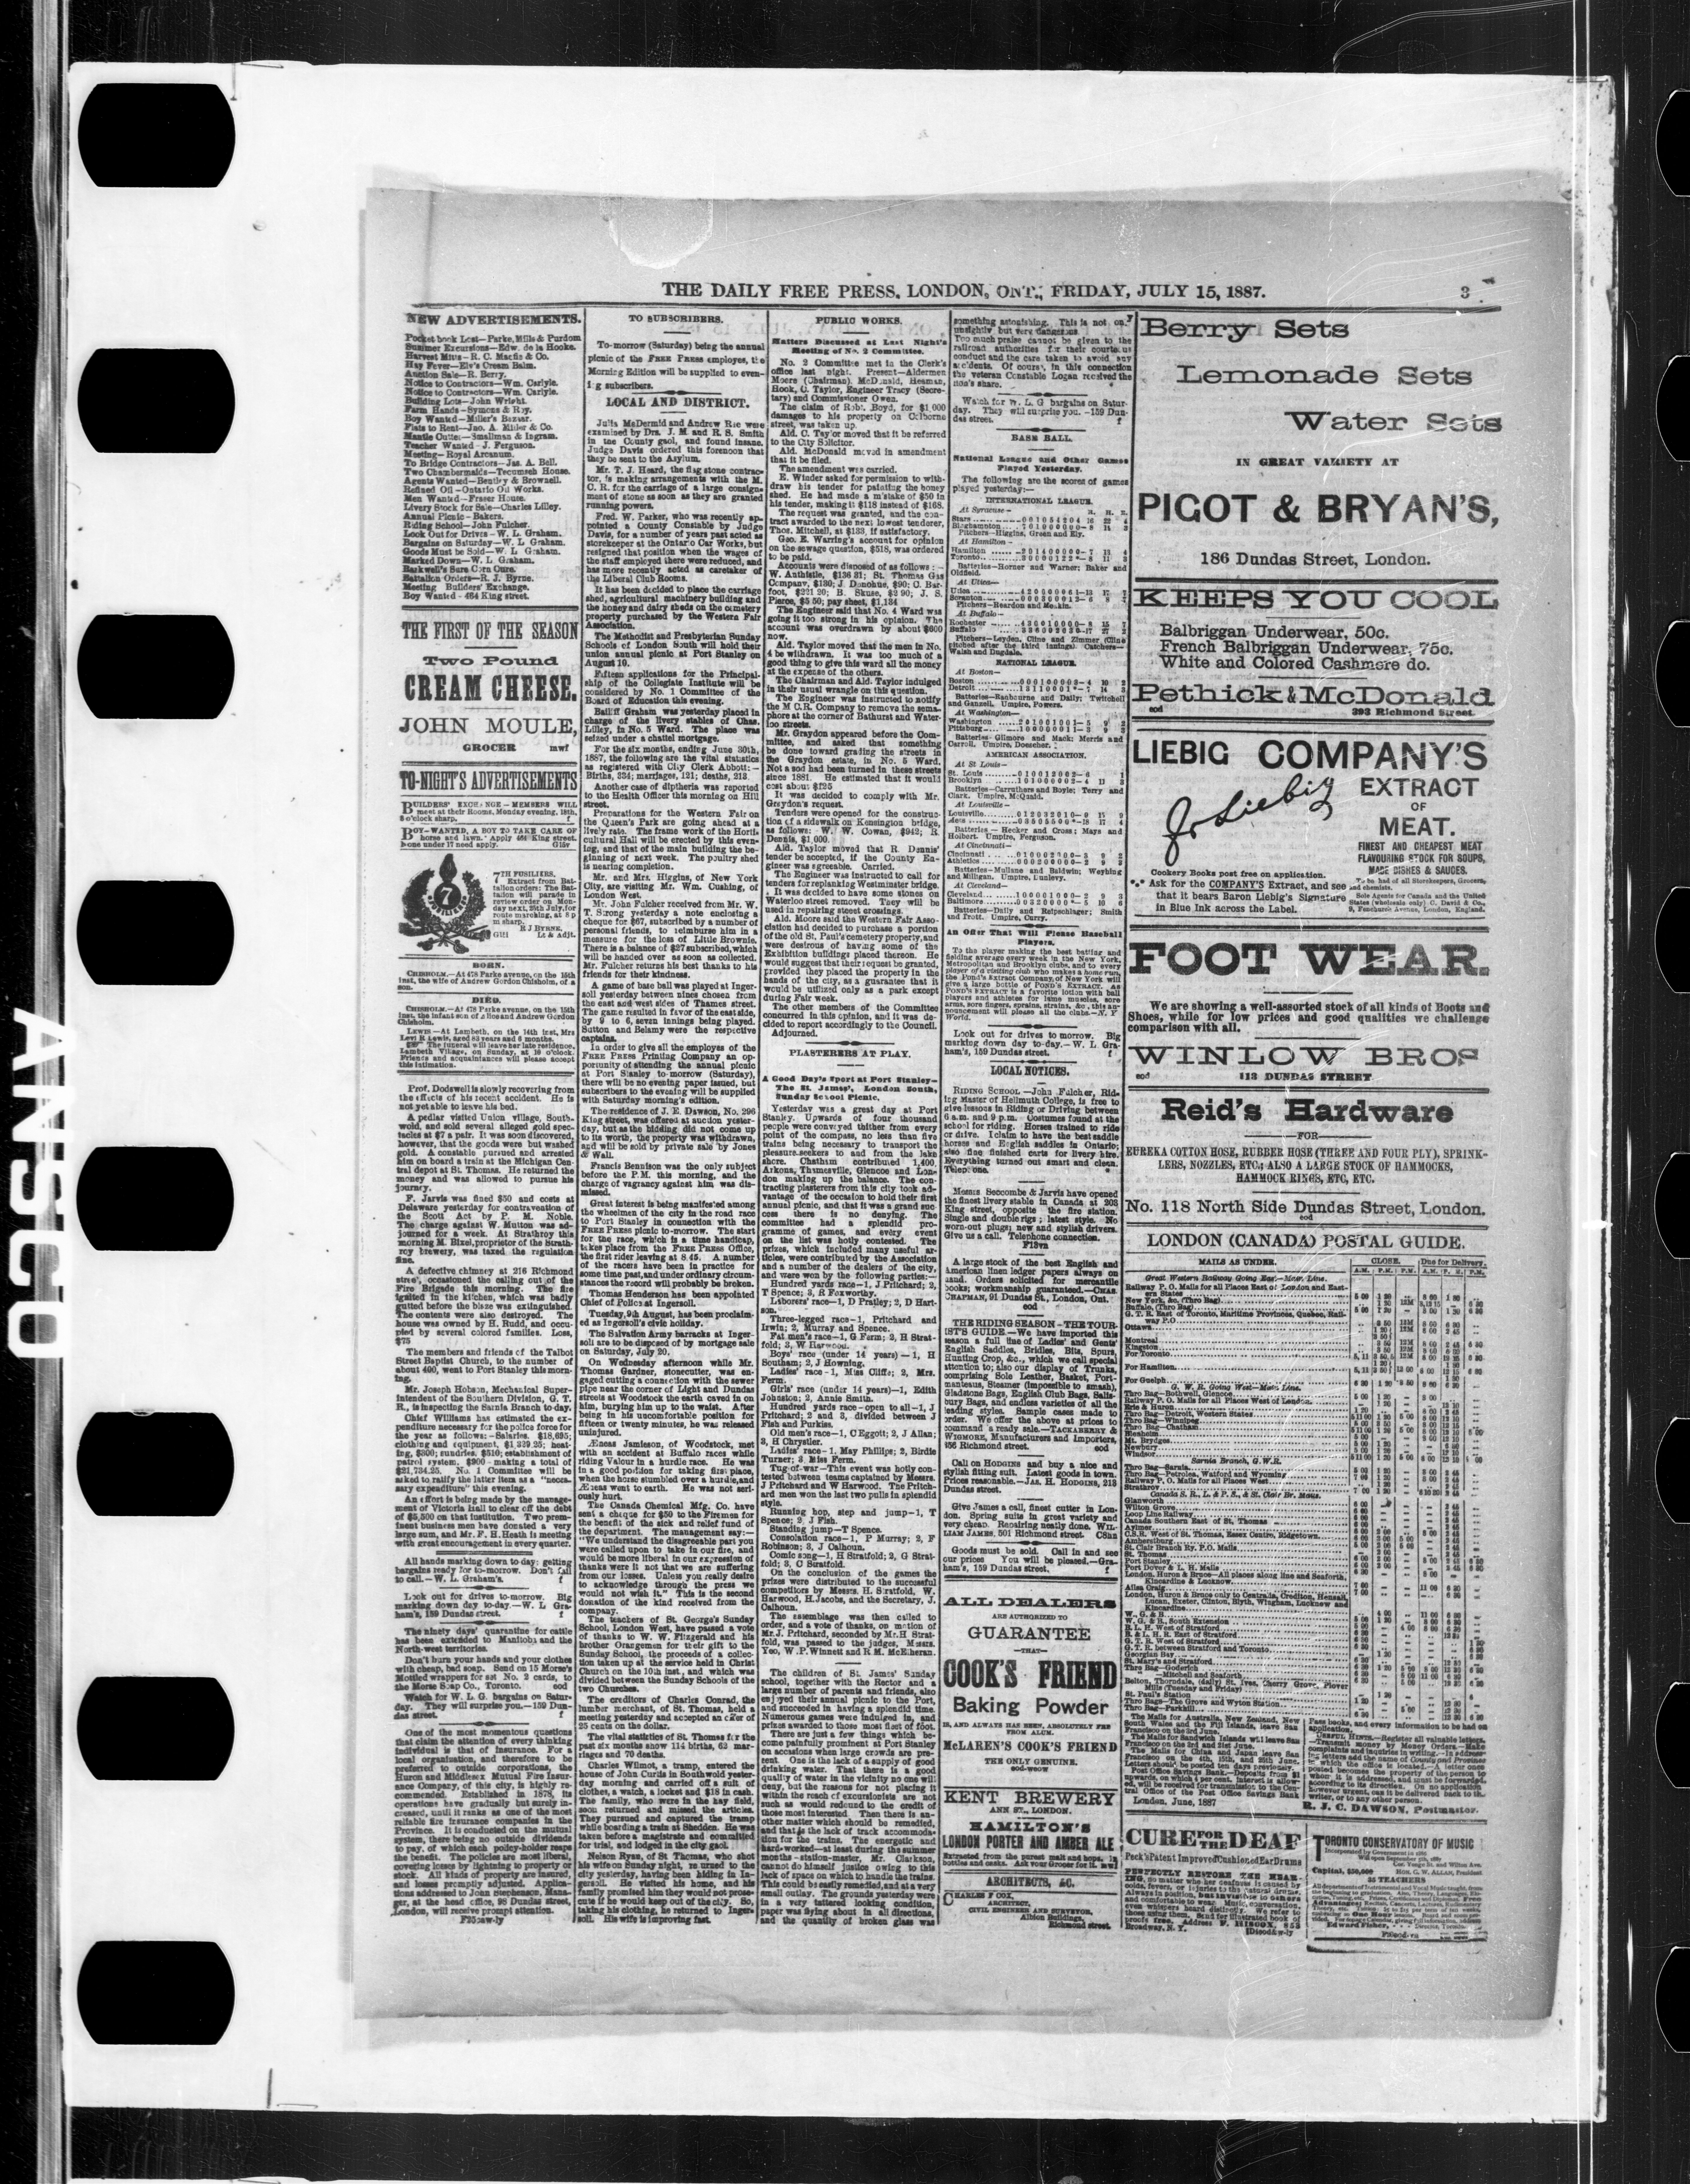 THE DAILY FREE PRESS, LONDON, ONT., FRIDAY, JULY 15, 1887.
3
NEW ADVERTISEMENTS.
Pocket book Lost—Parke, Mills & Purdom
Summer Excursions—Edw. de la Hooke.
Harvest Mitts—R. C. Macfie & Co.
Hay Fever—Ely's Cream Balm.
Auction Sale—R. Berry.
Notice to Contractors—Wm. Carlyle.
Notice to Contractors—Wm. Carlyle.
Building Lots—John Wright.
Farm Hands—Symons & Roy.
Boy Wanted—Miller's Bazaar.
Flats to Rent—Jno. A. Miller & Co.
Mantle Cutter—Smallman & Ingram.
Teacher Wanted—J. Ferguson.
Meeting—Royal Arcanum.
To Bridge Contractors—Jas. A. Bell.
Two Chambermaids—Tecumseh House.
Agents Wanted—Bentley & Brownell.
Refined Oil—Ontario Oil Works.
Men Wanted—Fraser House.
Livery Stock for Sale—Charles Lilley.
Annual Picnic—Bakers.
Riding School—John Fulcher.
Look Out for Drives—W. L. Graham.
Bargains on Saturday—W. L. Graham.
Goods Must be Sold—W. L. Graham.
Marked Down—W. L. Graham.
Barkwell's Sure Corn Cure.
Battalion Orders—R. J. Byrne.
Meeting Builders' Exchange.
Boy Wanted—464 King street.
THE FIRST OF THE SEASON
Two Pound
CREAM CHEESE.
JOHN MOULE,
GROCER mwf
TO-NIGHT'S ADVERTISEMENTS
BUILDERS' EXCHANGE—MEMBERS WILL
meet at their Rooms, Monday evening, 18th,
8 o'clock sharp. f
BOY—WANTED, A BOY TO TAKE CARE OF
horse and lawn. Apply 464 King street.
None under 17 need apply. G15v
7
7TH FUSILIERS.
Extract from Bat-
talion orders: The Bat-
talion will parade in
review order on Mon-
day next, 25th July, for
route marching, at 8 p
m sharp.
R J BYRNE,
Lt & Adjt.
BORN.
CHISHOLM.—At 478 Parke avenue, on the 15th
inst, the wife of Andrew Gordon Chisholm, of a
son.
DIED.
CHISHOLM.—At 478 Parke avenue, on the 15th
inst, the infant son of Alice and Andrew Gordon
Chisholm.
LEWIS—At Lambeth, on the 14th inst, Mrs
Levi R Lewis, aged 83 years and 6 months.
The funeral will leave her late residence,
Lambeth Village, on Sunday, at 10 o'clock.
Friends and acquaintances will please accept
this intimation.
Prof. Dodswell is slowly recovering from
the effects of his recent accident. He is
not yet able to leave his bed.
A pedlar visited Union village, South-
wold, and sold several alleged gold spec-
tacles at $7 a pair. It was soon discovered,
however, that the goods were but washed
gold. A constable pursued and arrested
him on board a train at the Michigan Cen-
tral depot at St. Thomas. He returned the
money and was allowed to pursue his
journey.
F. Jarvis was fined $50 and costs at
Delaware yesterday for contravention of
the Scott Act by P. M. Noble.
The charge against W. Mutton was ad-
journed for a week. At Strathroy this
morning M. Bixel, proprietor of the Strath-
roy brewery, was taxed the regulation
fine.
A defective chimney at 216 Richmond
street, occasioned the calling out of the
Fire Brigade this morning. The fire
ignited in the kitchen, which was badly
gutted before the blaze was extinguished.
The contents were also destroyed. The
house was owned by H. Rudd, and occu-
pied by several colored families. Loss,
$75
The members and friends of the Talbot
Street Baptist Church, to the number of
about 400, went to Port Stanley this morn-
ing.
Mr. Joseph Hobson, Mechanical Super-
intendent of the Southern Division, G. T.
R., is inspecting the Sarnia Branch to-day.
Chief Williams has estimated the ex-
penditure necessary for the police force for
the year as follows:—Salaries, $18,695;
clothing and equipment, $1,329 25; heat-
ing, $300; sundries, $510; establishment of
patrol system, $900—making a total of
$21,734.25. No. 1 Committee will be
asked to ratify the latter item as a "neces-
sary expenditure" this evening.
An effort is being made by the manage-
ment of Victoria Hall to clear off the debt
of $5,500 on that institution. Two prom-
inent business men have donated a very
large sum, and Mr. F. H. Heath is meeting
with great encouragement in every quarter.
All hands marking down to day; getting
bargains ready for to-morrow. Don't fail
to call.—W. L. Graham's. f
Look out for drives to-morrow. Big
marking down day to-day.—W. L. Gra-
ham's, 159 Dundas street. f
The ninety days' quarantine for cattle
has been extended to Manitoba and the
North-west territories.
Don't burn your hands and your clothes
with cheap, bad soap. Send on 15 Morse's
Mottled wrappers for set No. 2 cards, to
the Morse Soap Co., Toronto. eod
Watch for W. L. G. bargains on Satur-
day. They will surprise you.—159 Dun-
das street. f
One of the most momentous questions
that claim the attention of every thinking
individual is that of insurance. For a
local organisation, and therefore to be
preferred to outside corporations, the
Huron and Middlesex Mutual Fire Insur-
ance Company, of this city, is highly re-
commended. Established in 1878, its
operations have gradually but surely in-
creased, until it ranks as one of the most
reliable fire insurance companies in the
Province. It is conducted on the mutual
system, there being no outside dividends
to pay, of which each policy-holder reaps
the benefit. The policies are most liberal,
covering losses by lightning to property or
stock. All kinds of property insured,
and losses promptly adjusted. Applica-
tions addressed to John Stephenson, Mana-
ger, at the head office, 98 Dundas street,
London, will receive prompt attention.
TO SUBSCRIBERS.
To-morrow (Saturday) being the annual
picnic of the FREE PRESS employes, the
Morning Edition will be supplied to even-
ing subscribers.
LOCAL AND DISTRICT.
Julia McDermid and Andrew Rae were
examined by Drs. J. M. and R. S. Smith
in the County gaol, and found insane.
Judge Davis ordered this forenoon that
they be sent to the Asylum.
Mr. T. J. Heard, the flag stone contrac-
tor, is making arrangements with the M.
C. R. for the carriage of a large consign-
ment of stone as soon as they are granted
running powers.
Fred. W. Parker, who was recently ap-
pointed a County Constable by Judge
Davis, for a number of years past acted as
storekeeper at the Ontario Car Works, but
resigned that position when the wages of
the staff employed there were reduced, and
has more recently acted as caretaker of
the Liberal Club Rooms.
It has been decided to place the carriage
shed, agricultural machinery building and
the honey and dairy sheds on the cemetery
property purchased by the Western Fair
Association.
The Methodist and Presbyterian Sunday
Schools of London South will hold their
union annual picnic at Port Stanley on
August 10.
Fifteen applications for the Principal-
ship of the Collegiate Institute will be
considered by No. 1 Committee of the
Board of Education this evening.
Bailiff Graham was yesterday placed in
charge of the livery stables of Chas.
Lilley, in No. 5 Ward. The place was
seized under a chattel mortgage.
For the six months, ending June 30th,
1887, the following are the vital statistics
as registered with City Clerk Abbott:—
Births, 334; marriages, 121; deaths, 213.
Another case of diptheria was reported
to the Health Officer this morning on Hill
street.
Preparations for the Western Fair on
the Queen's Park are going ahead at a
lively rate. The frame work of the Horti-
cultural Hall will be erected by this even-
ing, and that of the main building the be-
ginning of next week. The poultry shed
is nearing completion.
Mr. and Mrs. Higgins, of New York
City, are visiting Mr. Wm. Cushing, of
London West.
Mr. John Fulcher received from Mr. W.
T. Strong yesterday a note enclosing a
cheque for $67, subscribed by a number of
personal friends, to reimburse him in a
measure for the loss of Little Brownie.
There is a balance of $27 subscribed, which
will be handed over as soon as collected.
Mr. Fulcher returns his best thanks to his
friends for their kindness.
A game of base ball was played at Inger-
soll yesterday between nines chosen from
the east and west sides of Thames street.
The game resulted in favor of the east side,
by 9 to 6, seven innings being played.
Sutton and Bellamy were the respective
captains.
In order to give all the employes of the
FREE PRESS Printing Company an op-
portunity of attending the annual picnic
at Port Stanley to-morrow (Saturday),
there will be no evening paper issued, but
subscribers to the evening will be supplied
with Saturday morning's edition.
The residence of J. E. Dawson, No. 296
King street, was offered at auction yester-
day, but as the bidding did not come up
to its worth, the property was withdrawn,
and will be sold by private sale by Jones
& Wall.
Francis Bennison was the only subject
before the P.M. this morning, and the
charge of vagrancy against him was dis-
missed.
Great interest is being manifested among
the wheelmen of the city in the road race
to Port Stanley in connection with the
FREE PRESS picnic to-morrow. The start
for the race, which is a time handicap,
takes place from the FREE PRESS Office,
the first rider leaving at 8 45. A number
of the racers have been in practice for
some time past, and under ordinary circum-
stances the record will probably be broken.
Thomas Henderson has been appointed
Chief of Police at Ingersoll.
Tuesday, 9th August, has been proclaim-
ed as Ingersoll's civic holiday.
The Salvation Army barracks at Inger-
soll are to be disposed of by mortgage sale
on Saturday, July 20.
On Wednesday afternoon while Mr.
Thomas Gardner, stonecutter, was en-
gaged cutting a connection with the sewer
pipe near the corner of Light and Dundas
streets at Woodstock the earth caved in on
him, burying him up to the waist. After
being in his uncomfortable position for
fifteen or twenty minutes, he was released
uninjured.
Æneas Jamieson, of Woodstock, met
with an accident at Buffalo races while
riding Valour in a hurdle race. He was
in a good position for taking first place,
when the horse stumbled over a hurdle, and
Æneas went to earth. He was not seri-
ously hurt.
The Canada Chemical Mfg. Co. have
sent a cheque for $50 to the Firemen for
the benefit of the sick and relief fund of
the department. The management say:—
"We understand the disagreeable part you
were called upon to take in our fire, and
would be more liberal in our expression of
thanks were it not that we are suffering
from our losses. Unless you really desire
to acknowledge through the press we
would not wish it." This is the second
donation of the kind received from the
company.
The teachers of St. George's Sunday
School, London West, have passed a vote
of thanks to W. W. Fitzgerald and his
brother Orangemen for their gift to the
Sunday School, the proceeds of a collec-
tion taken up at the service held in Christ
Church on the 10th inst., and which was
divided between the Sunday Schools of the
two Churches.
The creditors of Charles Conrad, the
lumber merchant, of St. Thomas, held a
meeting yesterday and accepted an offer of
25 cents on the dollar.
The vital statistics of St. Thomas for the
past six months show 114 births, 62 mar-
riages and 70 deaths.
Charles Wilmot, a tramp, entered the
house of John Curtis in Southwold yester-
day morning and carried off a suit of
clothes, a watch, a locket and $18 in cash.
The family, who were in the hay field,
soon returned and missed the articles.
They pursued and captured the tramp
while boarding a train at Shedden. He was
taken before a magistrate and committed
for trial, and lodged in the city gaol.
Nelson Ryan, of St Thomas, who shot
his wife on Sunday night, returned to the
city yesterday, having been hiding in In-
gersoll. He visited his home, and his
family promised him they would not prose-
cute if he would keep out of the city. So,
taking his clothing, he returned to Inger-
soll. His wife is improving fast.
PUBLIC WORKS.
Matters Discussed at Last Night's
Meeting of No. 2 Committee.
No. 2 Committee met in the Clerk's
office last night. Present—Aldermen
Moore (Chairman), McDonald, Heaman,
Hook, C. Taylor, Engineer Tracy (Secre-
tary) and Commissioner Owen.
The claim of Robt. Boyd, for $1,000
damages to his property on Colborne
street, was taken up.
Ald. C. Taylor moved that it be referred
to the City Solicitor.
Ald. McDonald moved in amendment
that it be filed.
The amendment was carried.
E. Winder asked for permission to with-
draw his tender for painting the honey
shed. He had made a mistake of $50 in
his tender, making it $118 instead of $168.
The request was granted, and the con-
tract awarded to the next lowest tenderer,
Thos. Mitchell, at $133, if satisfactory.
Geo. E. Warring's account for opinion
on the sewage question, $518, was ordered
to be paid.
Accounts were disposed of as follows:—
W. Anthistle, $136 81; St. Thomas Gas
Company, $130; J. Donohue, $90; C. Bar-
foot, $221 20; B. Skuse, $2 90; J. S.
Pierce, $5 50; pay sheet, $1,134
The Engineer said that No. 4 Ward was
going it too strong in his opinion. The
account was overdrawn by about $600
now.
Ald. Taylor moved that the men in No.
4 be withdrawn. It was too much of a
good thing to give this ward all the money
at the expense of the others.
The Chairman and Ald. Taylor indulged
in their usual wrangle on this question.
The Engineer was instructed to notify
the M C.R. Company to remove the sema-
phore at the corner of Bathurst and Water-
loo streets.
Mr. Graydon appeared before the Com-
mittee, and asked that something
be done toward grading the streets in
the Graydon estate, in No. 5 Ward.
Not a sod had been turned in these streets
since 1881. He estimated that it would
cost about $125
It was decided to comply with Mr.
Graydon's request.
Tenders were opened for the construc-
tion of a sidewalk on Kensington bridge,
as follows: W. W. Cowan, $942; R.
Dennis, $1,000.
Ald. Taylor moved that R. Dennis'
tender be accepted, if the County En-
gineer was agreeable. Carried.
The Engineer was instructed to call for
tenders for replanking Westminster bridge.
It was decided to have some stones on
Waterloo street removed. They will be
used in repairing street crossings.
Ald. Moore said the Western Fair Asso-
ciation had decided to purchase a portion
of the old St. Paul's cemetery property, and
were desirous of having some of the
Exhibition buildings placed thereon. He
would suggest that their request be granted,
provided they placed the property in the
hands of the city, as a guarantee that it
would be utilized only as a park except
during Fair week.
The other members of the Committee
concurred in this opinion, and it was de-
cided to report accordingly to the Council.
Adjourned.
PLASTERERS AT PLAY.
A Good Day's Sport at Port Stanley—
The St. James', London South,
Sunday School Picnic.
Yesterday was a great day at Port
Stanley. Upwards of four thousand
people were conveyed thither from every
point of the compass, no less than five
trains being necessary to transport the
pleasure-seekers to and from the lake
shore. Chatham contributed 1,400,
Arkona, Thamesville, Glencoe and Lon-
don making up the balance. The con-
tracting plasterers from this city took ad-
vantage of the occasion to hold their first
annual picnic, and that it was a grand suc-
cess there is no denying. The
committee had a splendid pro-
gramme of games, and every event
on the list was hotly contested. The
prizes, which included many useful ar-
ticles, were contributed by the Association
and a number of the dealers of the city,
and were won by the following parties:—
Hundred yards race—1, J Pritchard; 2,
T Spence; 3, R Foxworthy.
Laborers' race—1, D Pratley; 2, D Hart-
son.
Three-legged race—1, Pritchard and
Irwin; 2, Murray and Spence.
Fat men's race—1, G Ferm; 2, H Strat-
fold; 3, W Harwood.
Boys' race (under 14 years)—1, H
Southam; 2, J Howning.
Ladies' race—1, Miss Cliffe; 2, Mrs.
Ferm.
Girls' race (under 14 years)—1, Edith
Johnston; 2, Annie Smith.
Hundred yards race—open to all—1, J
Pritchard; 2 and 3, divided between J
Fish and Purkiss.
Old men's race—1, C Eggott; 2, J Allan;
3, H Chrystler.
Ladies' race—1, May Phillips; 2, Birdie
Turner; 3 Miss Ferm.
Tug-of-war—This event was hotly con-
tested between teams captained by Messrs.
J Pritchard and W Harwood. The Pritch-
ard men won the last two pulls in splendid
style.
Running hop, step and jump—1, T
Spence; 2, J Fish.
Standing jump—T Spence.
Consolation race—1, P Murray; 2, F
Robinson; 3, J Calhoun.
Comic song—1, H Stratfold; 2, G Strat-
fold; 3, C Stratfold.
On the conclusion of the games the
prizes were distributed to the successful
competitors by Messrs. H. Stratfold, W.
Harwood, H. Jacobs, and the Secretary, J.
Calhoun.
The assemblage was then called to
order, and a vote of thanks, on motion of
Mr. J. Pritchard, seconded by Mr. H Strat-
fold, was passed to the judges, Messrs.
Yeo, W. P. Winnett and R M. McElheran.
The children of St. James' Sunday
school, together with the Rector and a
large number of parents and friends, also
enjoyed their annual picnic to the Port,
and succeeded in having a splendid time.
Numerous games were indulged in, and
prizes awarded to those most fleet of foot.
There are just a few things which be-
come painfully prominent at Port Stanley
on occasions when large crowds are pre-
sent. One is the lack of a supply of good
drinking water. That there is a good
quality of water in the vicinity no one will
deny, but the reasons for not placing it
within the reach of excursionists are not
such as would redound to the credit of
those most interested. Then there is an-
other matter which should be remedied,
and that is the lack of track accommoda-
tion for the trains. The energetic and
hard-worked—at least during the summer
months—station-master, Mr. Clarkson,
cannot do himself justice owing to this
lack of space on which to handle the trains.
This could be easily remedied, and at a very
small outlay. The grounds yesterday were
in a very tattered looking condition,
paper was flying about in all directions,
and the quantity of broken glass was
something astonishing. This is not only
unsightly but very dangerous.
Too much praise cannot be given to the
railroad authorities for their courteous
conduct and the care taken to avoid any
accidents. Of course, in this connection
the veteran Constable Logan received the
lion's share.
Watch for W. L. G bargains on Satur-
day. They will surprise you.—159 Dun-
das street. f
BASE BALL.
National League and Other Games
Played Yesterday.
The following are the scores of games
played yesterday:—
INTERNATIONAL LEAGUE.
At Syracuse— R. H. E.
Pitchers—Higgins, Green and Ely.
At Hamilton—
Batteries—Horner and Warner; Baker and
Oldfield.
At Utica—
Pitchers—Reardon and Meakin.
At Buffalo—
Pitchers—Leyden, Cline and Zimmer (Cline
pitched after the third innings). Catchers—
Walsh and Dugdale.
NATIONAL LEAGUE.
At Boston—
Boston
Detroit
Batteries—Radbourne and Daily; Twitchell
and Ganzell. Umpire, Powers.
At Washington—
Washington
Pittsburg
Batteries—Gilmore and Mack; Morris and
Carroll. Umpire, Doescher.
AMERICAN ASSOCIATION.
At St Louis—
St. Louis
Brooklyn
Batteries—Carruthers and Boyle; Terry and
Clark. Umpire, McQuaid.
At Louisville—
Batteries—Hecker and Cross; Mays and
Holbert. Umpire, Ferguson.
At Cincinnati—
Batteries—Mullane and Baldwin; Weyhing
and Milligan.
At Cleveland—
Cleveland
Baltimore
Batteries—Daily and Reipschlager; Smith
and Trott. Umpire, Curry.
An Offer That Will Please Baseball
Players.
To the player making the best batting and
fielding average every week in the New York,
Metropolitan and Brooklyn clubs, and to every
player of a visiting club who makes a home run,
the Pond's Extract Company, of New York will
give a large bottle of POND'S EXTRACT. As
POND'S EXTRACT is a favorite lotion with ball
players and athletes for lame muscles, sore
arms, sore fingers, sprains, strains, &c., this an-
nouncement will please all the clubs.—N. Y
World.
Look out for drives to morrow. Big
marking down day to-day.—W. L. Gra-
ham's, 159 Dundas street. f
LOCAL NOTICES.
RIDING SCHOOL—John Fulcher, Rid-
ing Master of Hellmuth College, is free to
give lessons in Riding or Driving between
6 a.m. and 9 p.m. Costumes found at the
school for riding. Horses trained to ride
or drive. I claim to have the best saddle
horses and English saddles in Ontario;
also fine finished carts for livery hire.
Everything turned out smart and clean.
Messrs Seccombe & Jarvis have opened
the finest livery stable in Canada at 203
King street, opposite the fire station.
Single and double rigs; latest style. No
worn-out plugs; new and stylish drivers.
Give us a call. Telephone connection.
A large stock of the best English and
American linen ledger papers always on
hand. Orders solicited for mercantile
books; workmanship guaranteed.—CHAS.
CHAPMAN, 91 Dundas St., London, Ont.
eod
THE RIDING SEASON—THE TOUR-
IST'S GUIDE.—We have imported this
season a full line of Ladies' and Gents'
English Saddles, Bridles, Bits, Spurs,
Hunting Crop, &c., which we call special
attention to; also our display of Trunks,
comprising Sole Leather, Basket, Port-
manteaus, Steamer (impossible to smash),
Gladstone Bags, English Club Bags, Salis-
bury Bags, and endless varieties of all the
leading styles. Sample cases made to
order. We offer the above at prices to
command a ready sale.—TACKABERRY &
WIGMORE, Manufacturers and Importers,
436 Richmond street. eod
Call on HODGINS and buy a nice and
stylish fitting suit. Latest goods in town.
Prices reasonable.—JAS. H. HODGINS, 213
Dundas street.
Give James a call, finest cutter in Lon-
don. Spring suits in great variety and
very cheap. Repairing neatly done. WIL-
LIAM JAMES, 501 Richmond street.
Goods must be sold. Call in and see
our prices You will be pleased.—Gra-
ham's, 159 Dundas street. f
ALL DEALERS
ARE AUTHORIZED TO
GUARANTEE
—THAT—
COOK'S FRIEND
Baking Powder
IS, AND ALWAYS HAS BEEN, ABSOLUTELY FREE
FROM ALUM.
McLAREN'S COOK'S FRIEND
THE ONLY GENUINE.
eod-weow
KENT BREWERY
ANN ST., LONDON.
HAMILTON'S
LONDON PORTER AND AMBER ALE
Extracted from the purest malt and hops, in
bottles and casks. Ask your Grocer for it.
ARCHITECTS, &C.
CHARLES F COX,
ARCHITECT,
CIVIL ENGINEER AND SURVEYOR,
Albion Buildings,
Richmond street.
Berry Sets
Lemonade Sets
Water Sets
IN GREAT VARIETY AT
PIGOT & BRYAN'S,
186 Dundas Street, London.
KEEPS YOU COOL
Balbriggan Underwear, 50c.
French Balbriggan Underwear, 75c.
White and Colored Cashmere do.
Pethick & McDonald
eod 393 Richmond Street.
LIEBIG COMPANY'S
EXTRACT
OF
MEAT.
J. v. Liebig
FINEST AND CHEAPEST MEAT
FLAVOURING STOCK FOR SOUPS,
MADE DISHES & SAUCES.
Cookery Books post free on application.
Ask for the COMPANY'S Extract, and see
that it bears Baron Liebig's Signature
in Blue Ink across the Label.
To be had of all Storekeepers, Grocers,
and chemists.
Sole Agents for Canada and the United
States (wholesale only) C. David & Co.,
9, Fenchurch Avenue, London, England.
FOOT WEAR.
We are showing a well-assorted stock of all kinds of Boots and
Shoes, while for low prices and good qualities we challenge
comparison with all.
WINLOW BROS
eod 113 DUNDAS STREET
Reid's Hardware
—FOR—
EUREKA COTTON HOSE, RUBBER HOSE (THREE AND FOUR PLY), SPRINK-
LERS, NOZZLES, ETC; ALSO A LARGE STOCK OF HAMMOCKS,
HAMMOCK RINGS, ETC, ETC.
No. 118 North Side Dundas Street, London.
eod
LONDON (CANADA) POSTAL GUIDE.
MAILS AS UNDER. CLOSE. Due for Delivery.
A.M. P.M. P.M. A.M. P.M. P.M.
Great Western Railway Going East—Main Line.
Railway P. O. Mails for all Places East of London and East-
ern States
New York, &c. (Thro Bag)
Buffalo, (Thro Bag)
G. T. R. East of Toronto, Maritime Provinces, Quebec, Rail-
way P.O
Ottawa
Montreal
Kingston
For Toronto
For Hamilton
For Guelph
G. W. R. Going West—Main Line.
Thro Bag—Bothwell, Glencoe
Railway P. O. Mails for all Places West of London
Erie & Huron
Thro Bag—Detroit, Western States
Thro Bag—Winnipeg
Thro Bag—Chatham
Blenheim
Mt. Brydges
Newbury
Windsor
Sarnia Branch, G.W.R.
Thro Bag—Sarnia
Thro Bag—Petrolea, Watford and Wyoming
Railway P. O. Mails for all Places West
Strathroy
Canada S. R., L. & P. S., & St. Clair Br. Mails.
Glanworth
Wilton Grove
Loop Line Railway
Canada Southern East of St. Thomas
Aylmer
C.S.R. West of St. Thomas, Essex Centre, Ridgetown
Amherstburg
St. Clair Branch Ry. P.O. Mails
St. Thomas
Port Stanley
Port Dover & L. H. Mails
London, Huron & Bruce—All places along line and Seaforth,
Kincardine & Lucknow
Ailsa Craig
London, Huron & Bruce only to Centralia, Crediton, Hensall,
Lucan, Exeter, Clinton, Blyth, Wingham, Lucknow and
Kincardine
W., G. & B.
W. G. & B., South Extension
B. L. H. West of Stratford
B. & L. H. R. East of Stratford
G. T. R. West of Stratford
G. T. R. between Stratford and Toronto
Georgian Bay
St. Mary's and Stratford
Thro Bag—Goderich
—Mitchell and Seaforth
Belton, Thorndale, (daily) St. Ives, Cherry Grove, Plover
Mills (Tuesday and Friday)
St. Paul's Station
Thro Bags—The Grove and Wyton Station
Thro Bag—Parkhill
The Mails for Australia, New Zealand, New
South Wales and the Fiji Islands, leave San
Francisco on the 3rd June.
The Mails for Sandwich Islands will leave San
Francisco on the 3rd and 31st June.
The Mails for China and Japan leave San
Post Office Savings Bank—Deposits from $1
upwards, on which 4 per cent. interest is allow-
ed, will be received for transmission to the Cen-
tral Office of the Post Office Savings Bank
London, June, 1887
Pass books, and every information to be had on
application.
USEFUL HINTS.—Register all valuable letters.
—Transmit money by Money Orders.—Make
complaints and inquiries in writing.—In address-
ing letters add the name of County and Province
in which the office is located.—A letter once
posted becomes the property of the person to
whom it is addressed, and must be forwarded
according to its direction. On no application
however urgent, can it be delivered back to the
writer, or to any other person.
R. J. C. DAWSON, Postmaster.
CURE FOR THE DEAF
Peck's Patent Improved Cushioned Ear Drums
PERFECTLY RESTORE THE HEAR-
ING, no matter whether deafness is caused by
colds, fevers, or injuries to the natural drums.
Always in position, but invisible to others
and comfortable to wear. Music, conversation,
even whispers heard distinctly. We refer to
those using them. Send for illustrated book of
proofs free. Address F. HISCOX, 853
Broadway, N. Y.
TORONTO CONSERVATORY OF MUSIC
Incorporated by Government in 1886
Will open September 5th, 1887
Cor. Yonge St. and Wilton Ave.
Capital, $50,000 HON. G. W. ALLAN, President
35 TEACHERS
Edward Fisher, Director, Toronto
ANSCO